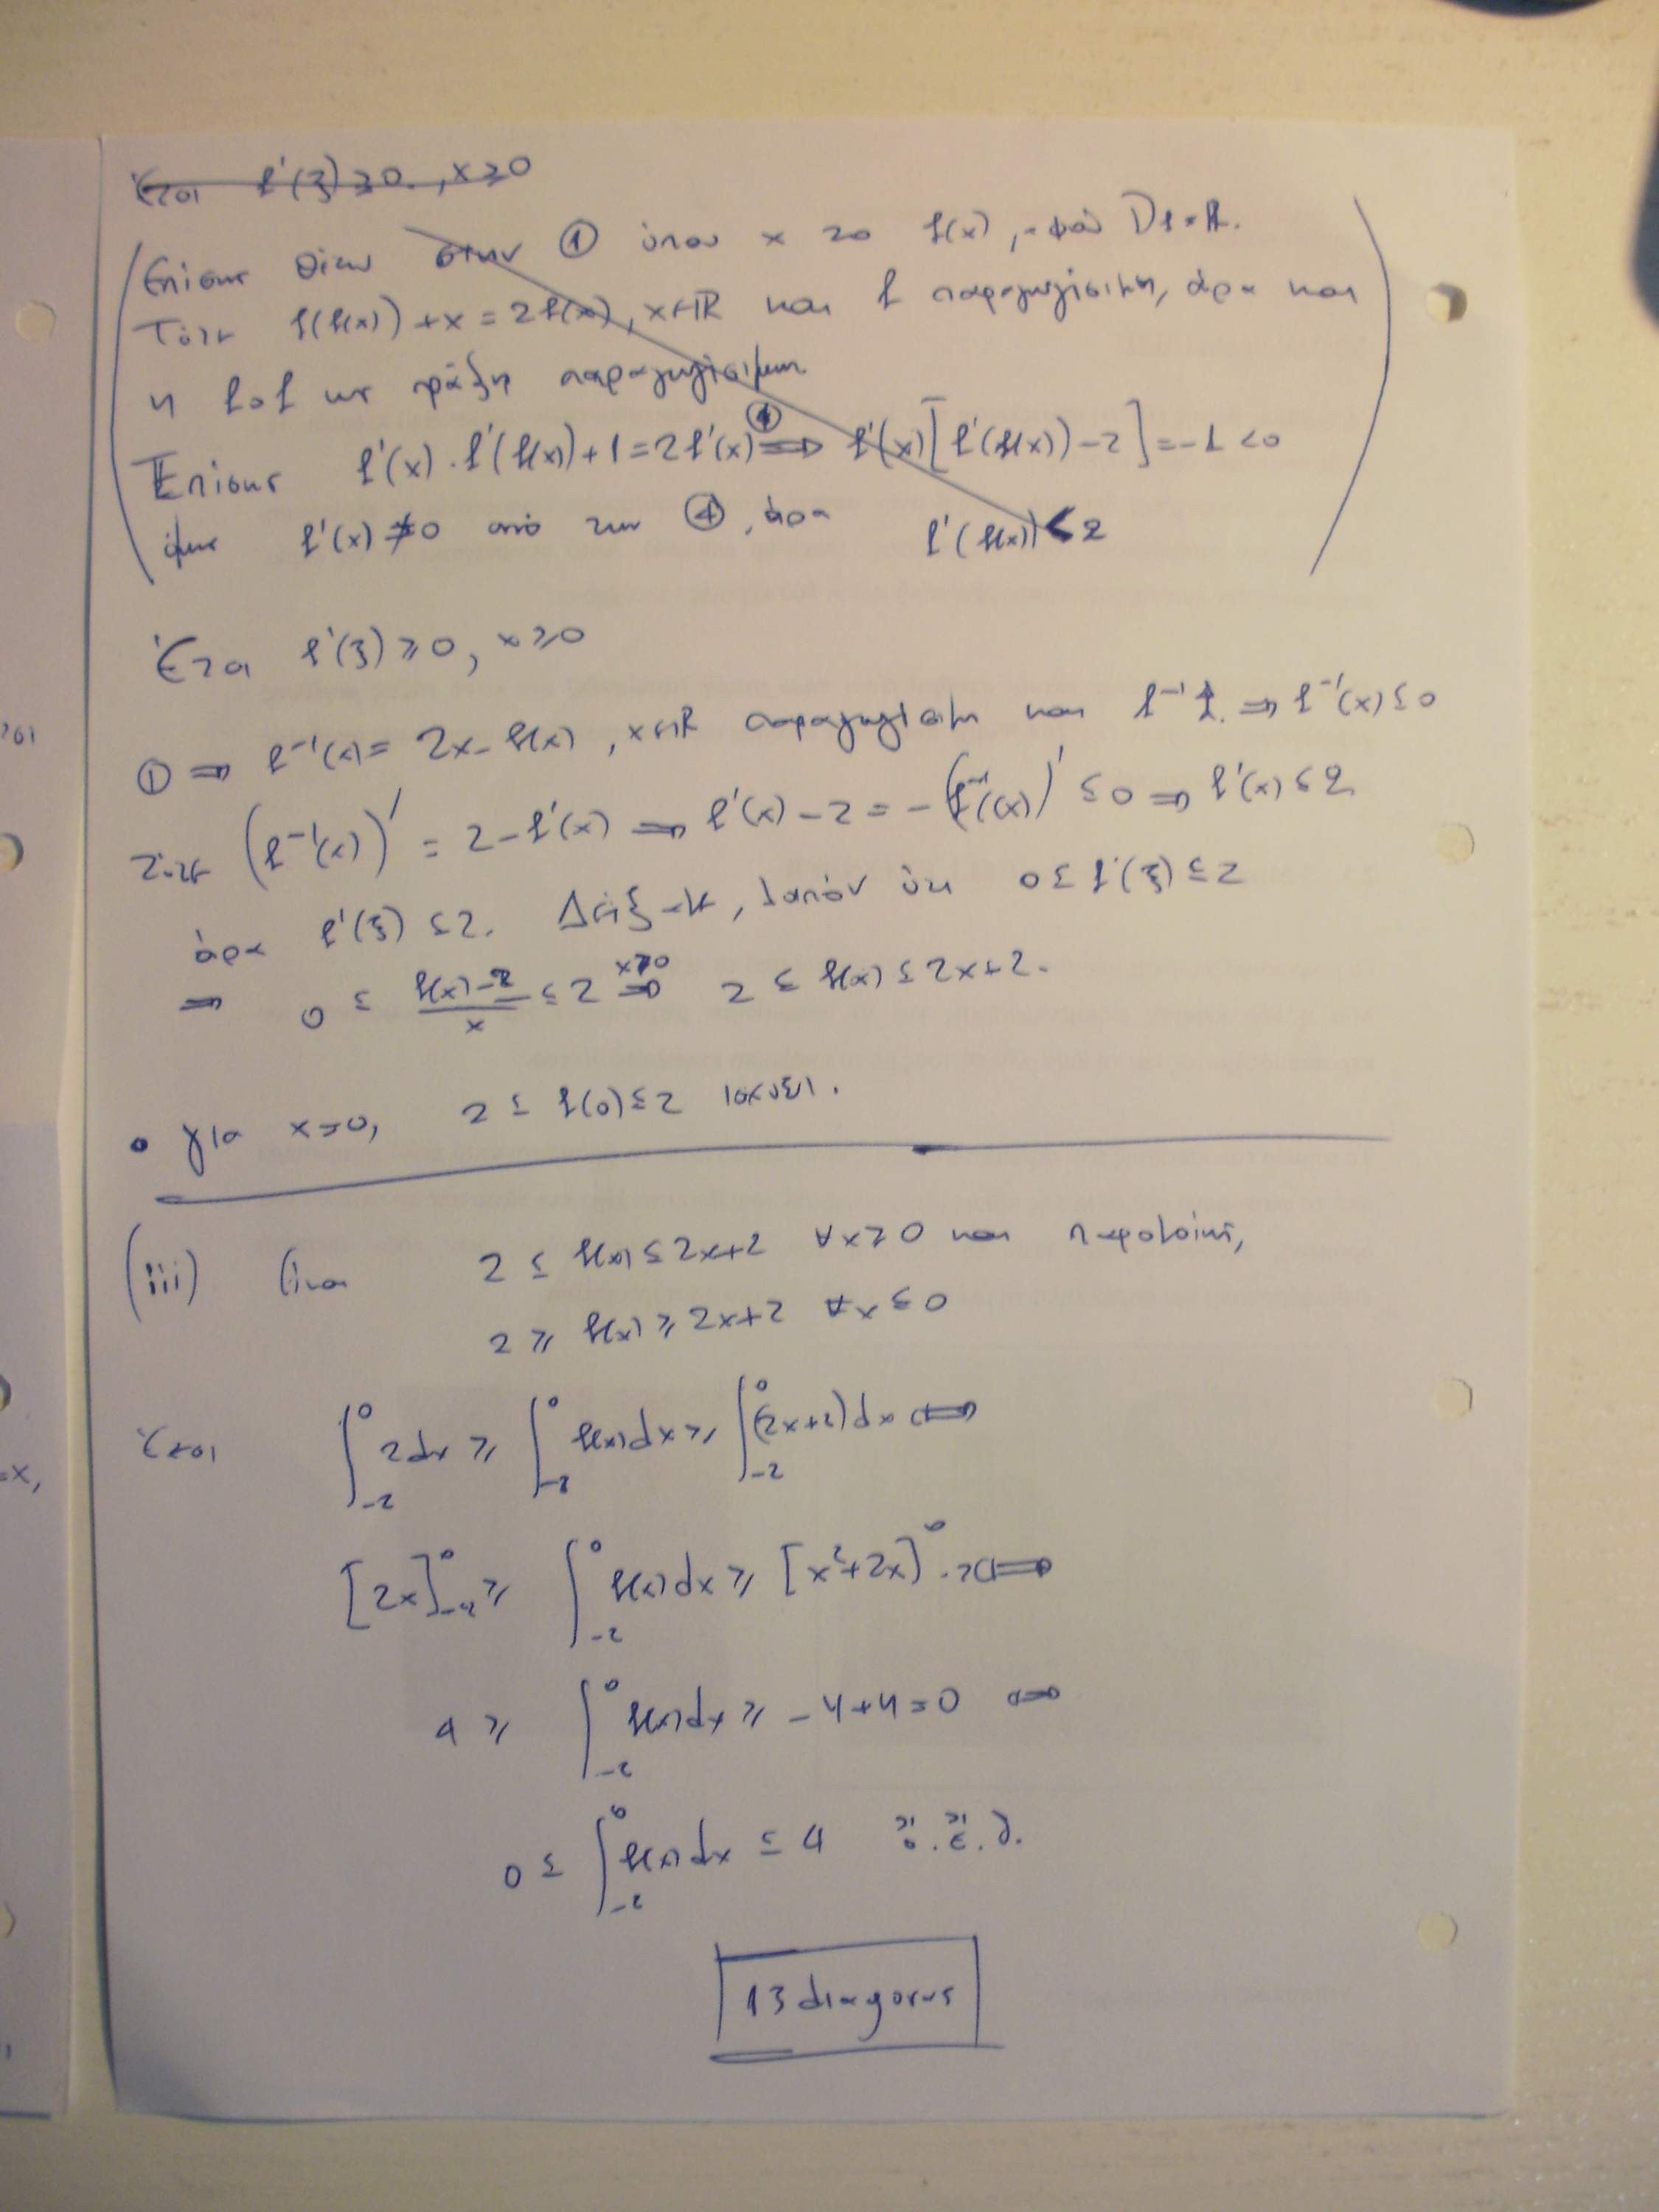 Έτσι f'(ξ) ≥ 0, x ≥ 0
Επίσης θέτω στην ① όπου x το f(x), αφού Df = R.
Τότε f(f(x)) + x = 2f(x), x∈R και f παραγωγίσιμη, άρα και
η fof ως πράξη παραγωγίσιμων
Επίσης f'(x)·f'(f(x)) + 1 = 2f'(x) ④⟹ f'(x)[f'(f(x)) - 2] = -1 < 0
όμως f'(x) ≠ 0 από την ④, άρα f'(f(x)) < 2
Έτσι f'(ξ) ≥ 0, x ≥ 0
① ⟹ f⁻¹(x) = 2x - f(x), x∈R παραγωγίσιμη και f⁻¹ ⟹ f⁻¹(x) ≤ 0
Τότε (f⁻¹(x))' = 2 - f'(x) ⟹ f'(x) - 2 = -(f⁻¹(x))' ≤ 0 ⟹ f'(x) ≤ 2
άρα f'(ξ) ≤ 2. Δείξαμε, λοιπόν ότι 0 ≤ f'(ξ) ≤ 2
⟹ 0 ≤ (f(x) - 2)/x ≤ 2 x>0⟹ 2 ≤ f(x) ≤ 2x+2.
• για x=0, 2 ≤ f(0) ≤ 2 ισχύει.
(iii) Είναι 2 ≤ f(x) ≤ 2x+2 ∀x ≥ 0 και παρομοίως,
2 ≥ f(x) ≥ 2x+2 ∀x ≤ 0
Έτσι ∫₋₂⁰ 2dx ≥ ∫₋₂⁰ f(x)dx ≥ ∫₋₂⁰ (2x+2)dx ⟺
[2x]₋₂⁰ ≥ ∫₋₂⁰ f(x)dx ≥ [x²+2x]₋₂⁰ ⟺
4 ≥ ∫₋₂⁰ f(x)dx ≥ -4+4=0 ⟺
0 ≤ ∫₋₂⁰ f(x)dx ≤ 4 ο.ε.δ.
13 diagoras